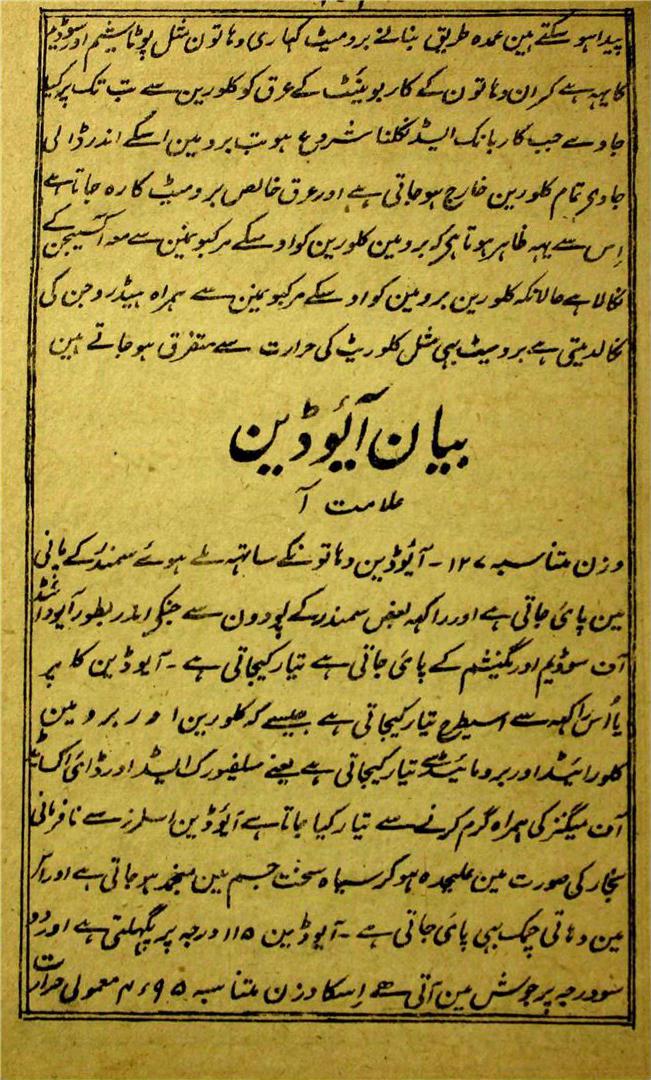 پیدا ہو سکتے ہین عمدہ طریق بنانے برومیٹ کہاری دہاتون مثل پوٹاسیٹیم اور سوڈیم
کا یہہ ہے کہ ان دہاتون کے کاربونیٹ کے عرق کو کلورین سے تب تک پر کیا
جاوے جب کاربانک ایسڈ نکلنا شروع ہو تب برومین اسکے اندر ڈالی
جاوی تمام کلورین خارج ہو جاتی ہے اور عرق خالص برومیٹ کا رہ جاتا ہے
اِس سے یہہ ظاہر ہوتا ہی کہ برومین کلورین کو اوسکے مرکبو نمین سے معہ آکسیجن کے
نکالا ہے حالانکہ کلورین برومین کو اوسکے مرکبو نمین سے ہمراہ ہیڈروجن کی
نکالدیتی ہے برومیٹ بہی مثل کلوریٹ کی حرارت سے متفرق ہو جاتے ہین
بیان آیُوڈین
علامت آ
وزن متناسبہ ۱۲۷ - آیُوڈین دہاتونکے ساتہہ ملے ہوئے سمندر کے پانی
مین پائی جاتی ہے اور راکہہ بعض سمندر کے پودون سے جنکی اندر بطور آیوڈائیڈ
آف سوڈیم اور مگنیشم کے پائی جاتی ہے تیار کیجاتی ہے - آیوڈین کا
یا اُس راکہہ سے اسیطرح تیار کیجاتی ہے جیسے کہ کلورین اور برومین
کلورائیڈ اور برومائیڈ سے تیار کیجاتی ہے یعنے سلفیورک ایسڈ اور ڈائی اکسائیڈ
آف مینگنیز کی ہمراہ گرم کرنے سے تیار کیا جاتا ہے آیُوڈین اسطرز سے نافرمانی
بخار کی صورت مین علیحدہ ہو کر سیاہ سخت جسم مین منجمد ہو جاتی ہے اور اگر
مین دہاتی چمک بہی پائی جاتی ہے - آیوڈین ۱۱۵ درجہ پر پگہلتی ہے اور دو
سو درجہ پر جوش مین آتی ہے اِسکا وزن متناسبہ ۴٫۹۵ معمولی حرارت